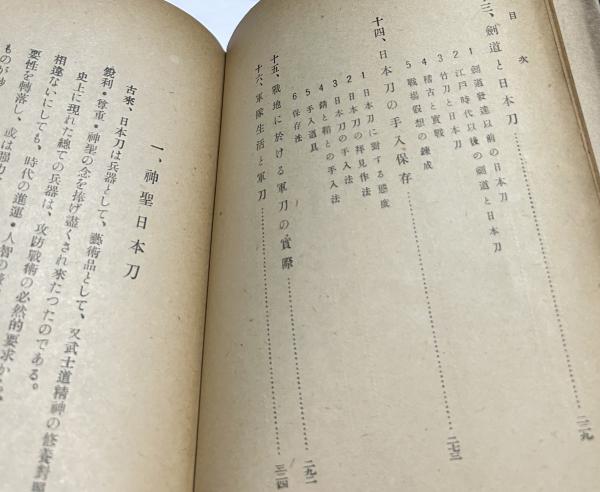 目次
三、劍道と日本刀……二一九
1 劍道發達以前の日本刀
2 江戸時代以後の劍道と日本刀
3 竹刀と日本刀
4 稽古と實戰
5 戰場假想の錬成
十四、日本刀の手入保存……二七三
1 日本刀に對する態度
2 日本刀の拜見作法
3 日本刀の手入法
4 鍔と鞘との手入法
5 手入道具
6 保存法
十五、戰地に於ける軍刀の實際……二九二
十六、軍隊生活と軍刀……三二四
一、神聖日本刀
古來、日本刀は兵器として、藝術品として、又武士道精神の修養對照
銳利・尊重・神聖の念を捧げ盡くされ來たつたのである。
史上に現れた總ての兵器は、攻防戰術の必然的要求か
相違ないにしても、時代の進運・人智の
要性を轉落し、或は
ものが